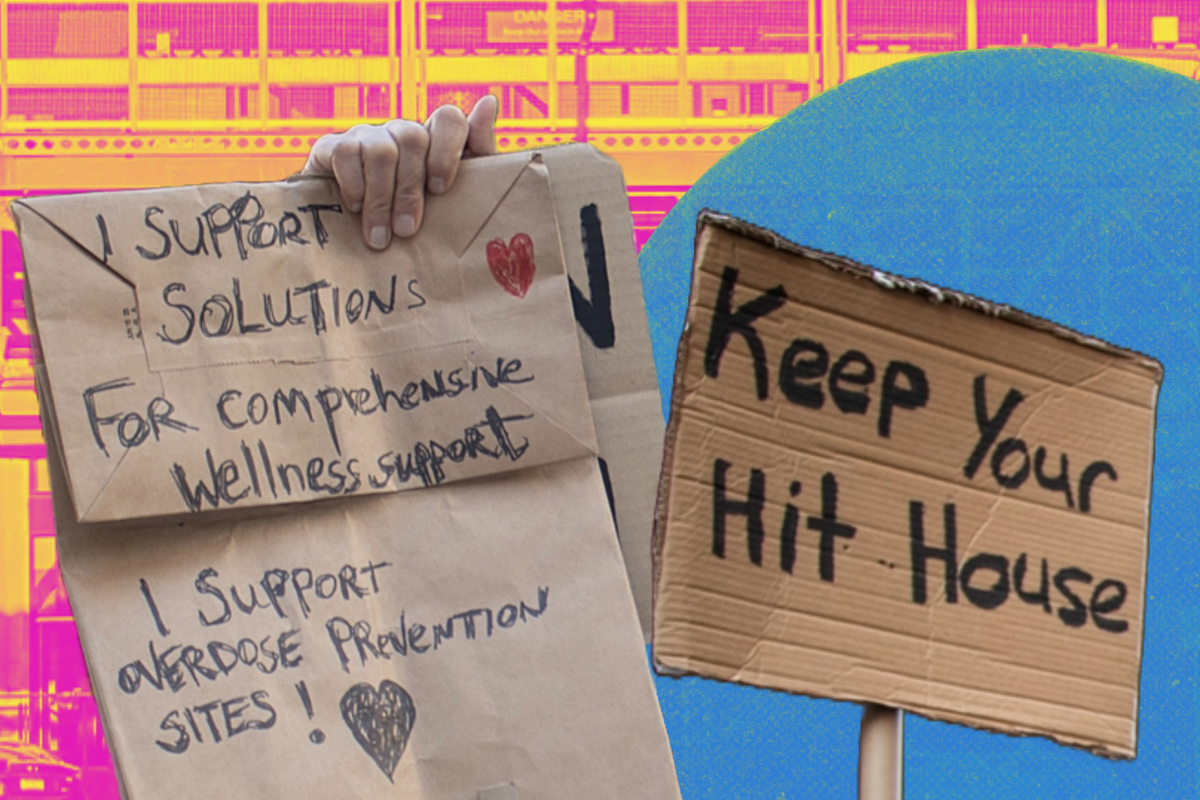 DANGER
I SUPPORT
SOLUTIONS
FOR comprehensive
Wellness support
I SUPPORT
OVERDOSE PREVENTION
SITES!
N
Keep Your
Hit House